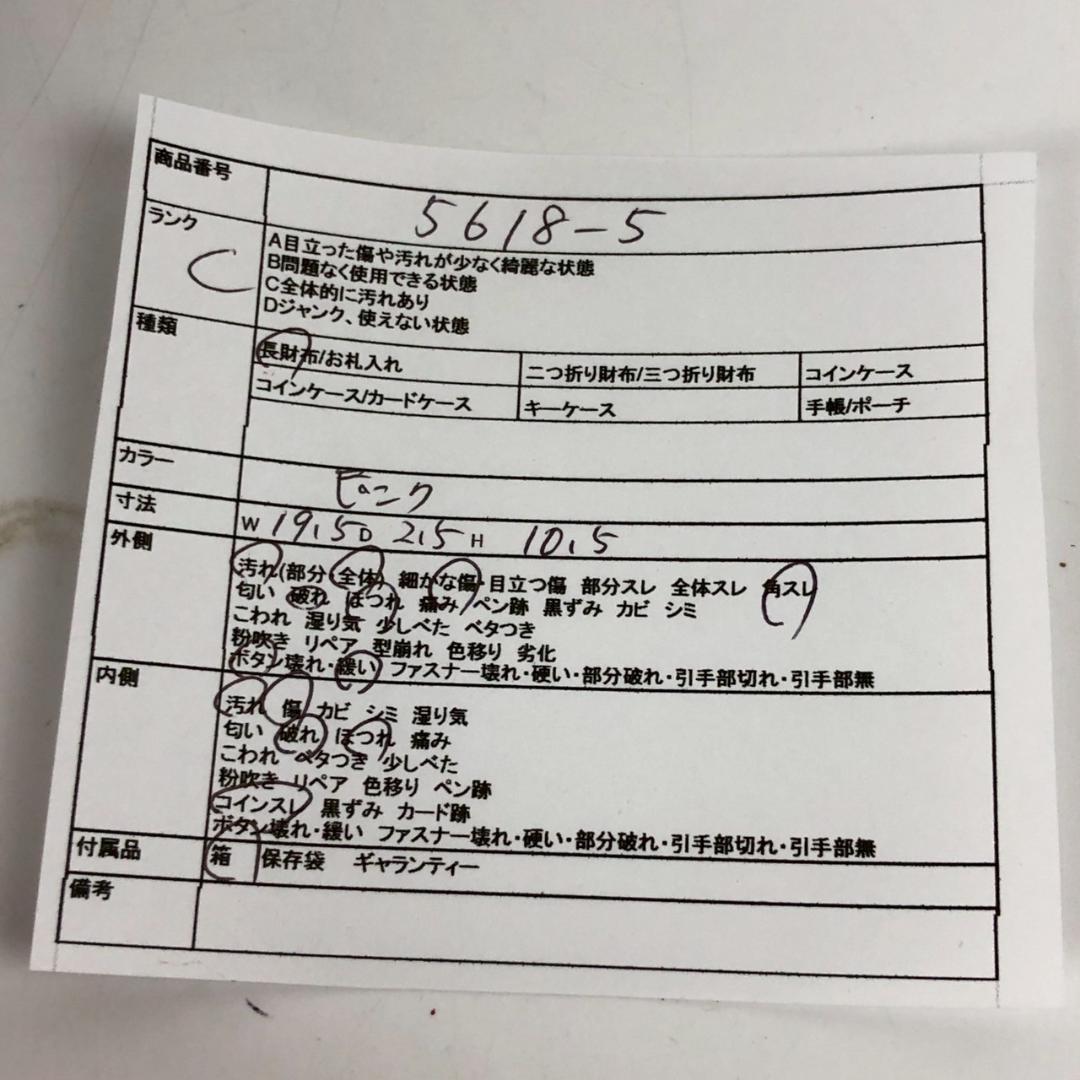 商品番号
5618-5
ランク
C
A目立った傷や汚れが少なく綺麗な状態
B問題なく使用できる状態
C全体的に汚れあり
Dジャンク、使えない状態
種類
長財布/お札入れ
二つ折り財布/三つ折り財布
コインケース
コインケース/カードケース
キーケース
手帳/ポーチ
カラー
ピンク
寸法
W 19.5 D 2.5 H 10.5
外側
汚れ(部分 全体) 細かな傷・目立つ傷 部分スレ 全体スレ 角スレ
匂い 破れ ほつれ 痛み ペン跡 黒ずみ カビ シミ
こわれ 湿り気 少しべた ベタつき
粉吹き リペア 型崩れ 色移り 劣化
ボタン壊れ・緩い ファスナー壊れ・硬い・部分破れ・引手部切れ・引手部無
内側
汚れ 傷 カビ シミ 湿り気
匂い 破れ ほつれ 痛み
こわれ ベタつき 少しべた
粉吹き リペア 色移り ペン跡
コインスレ 黒ずみ カード跡
ボタン壊れ・緩い ファスナー壊れ・硬い・部分破れ・引手部切れ・引手部無
付属品
箱 保存袋 ギャランティー
備考